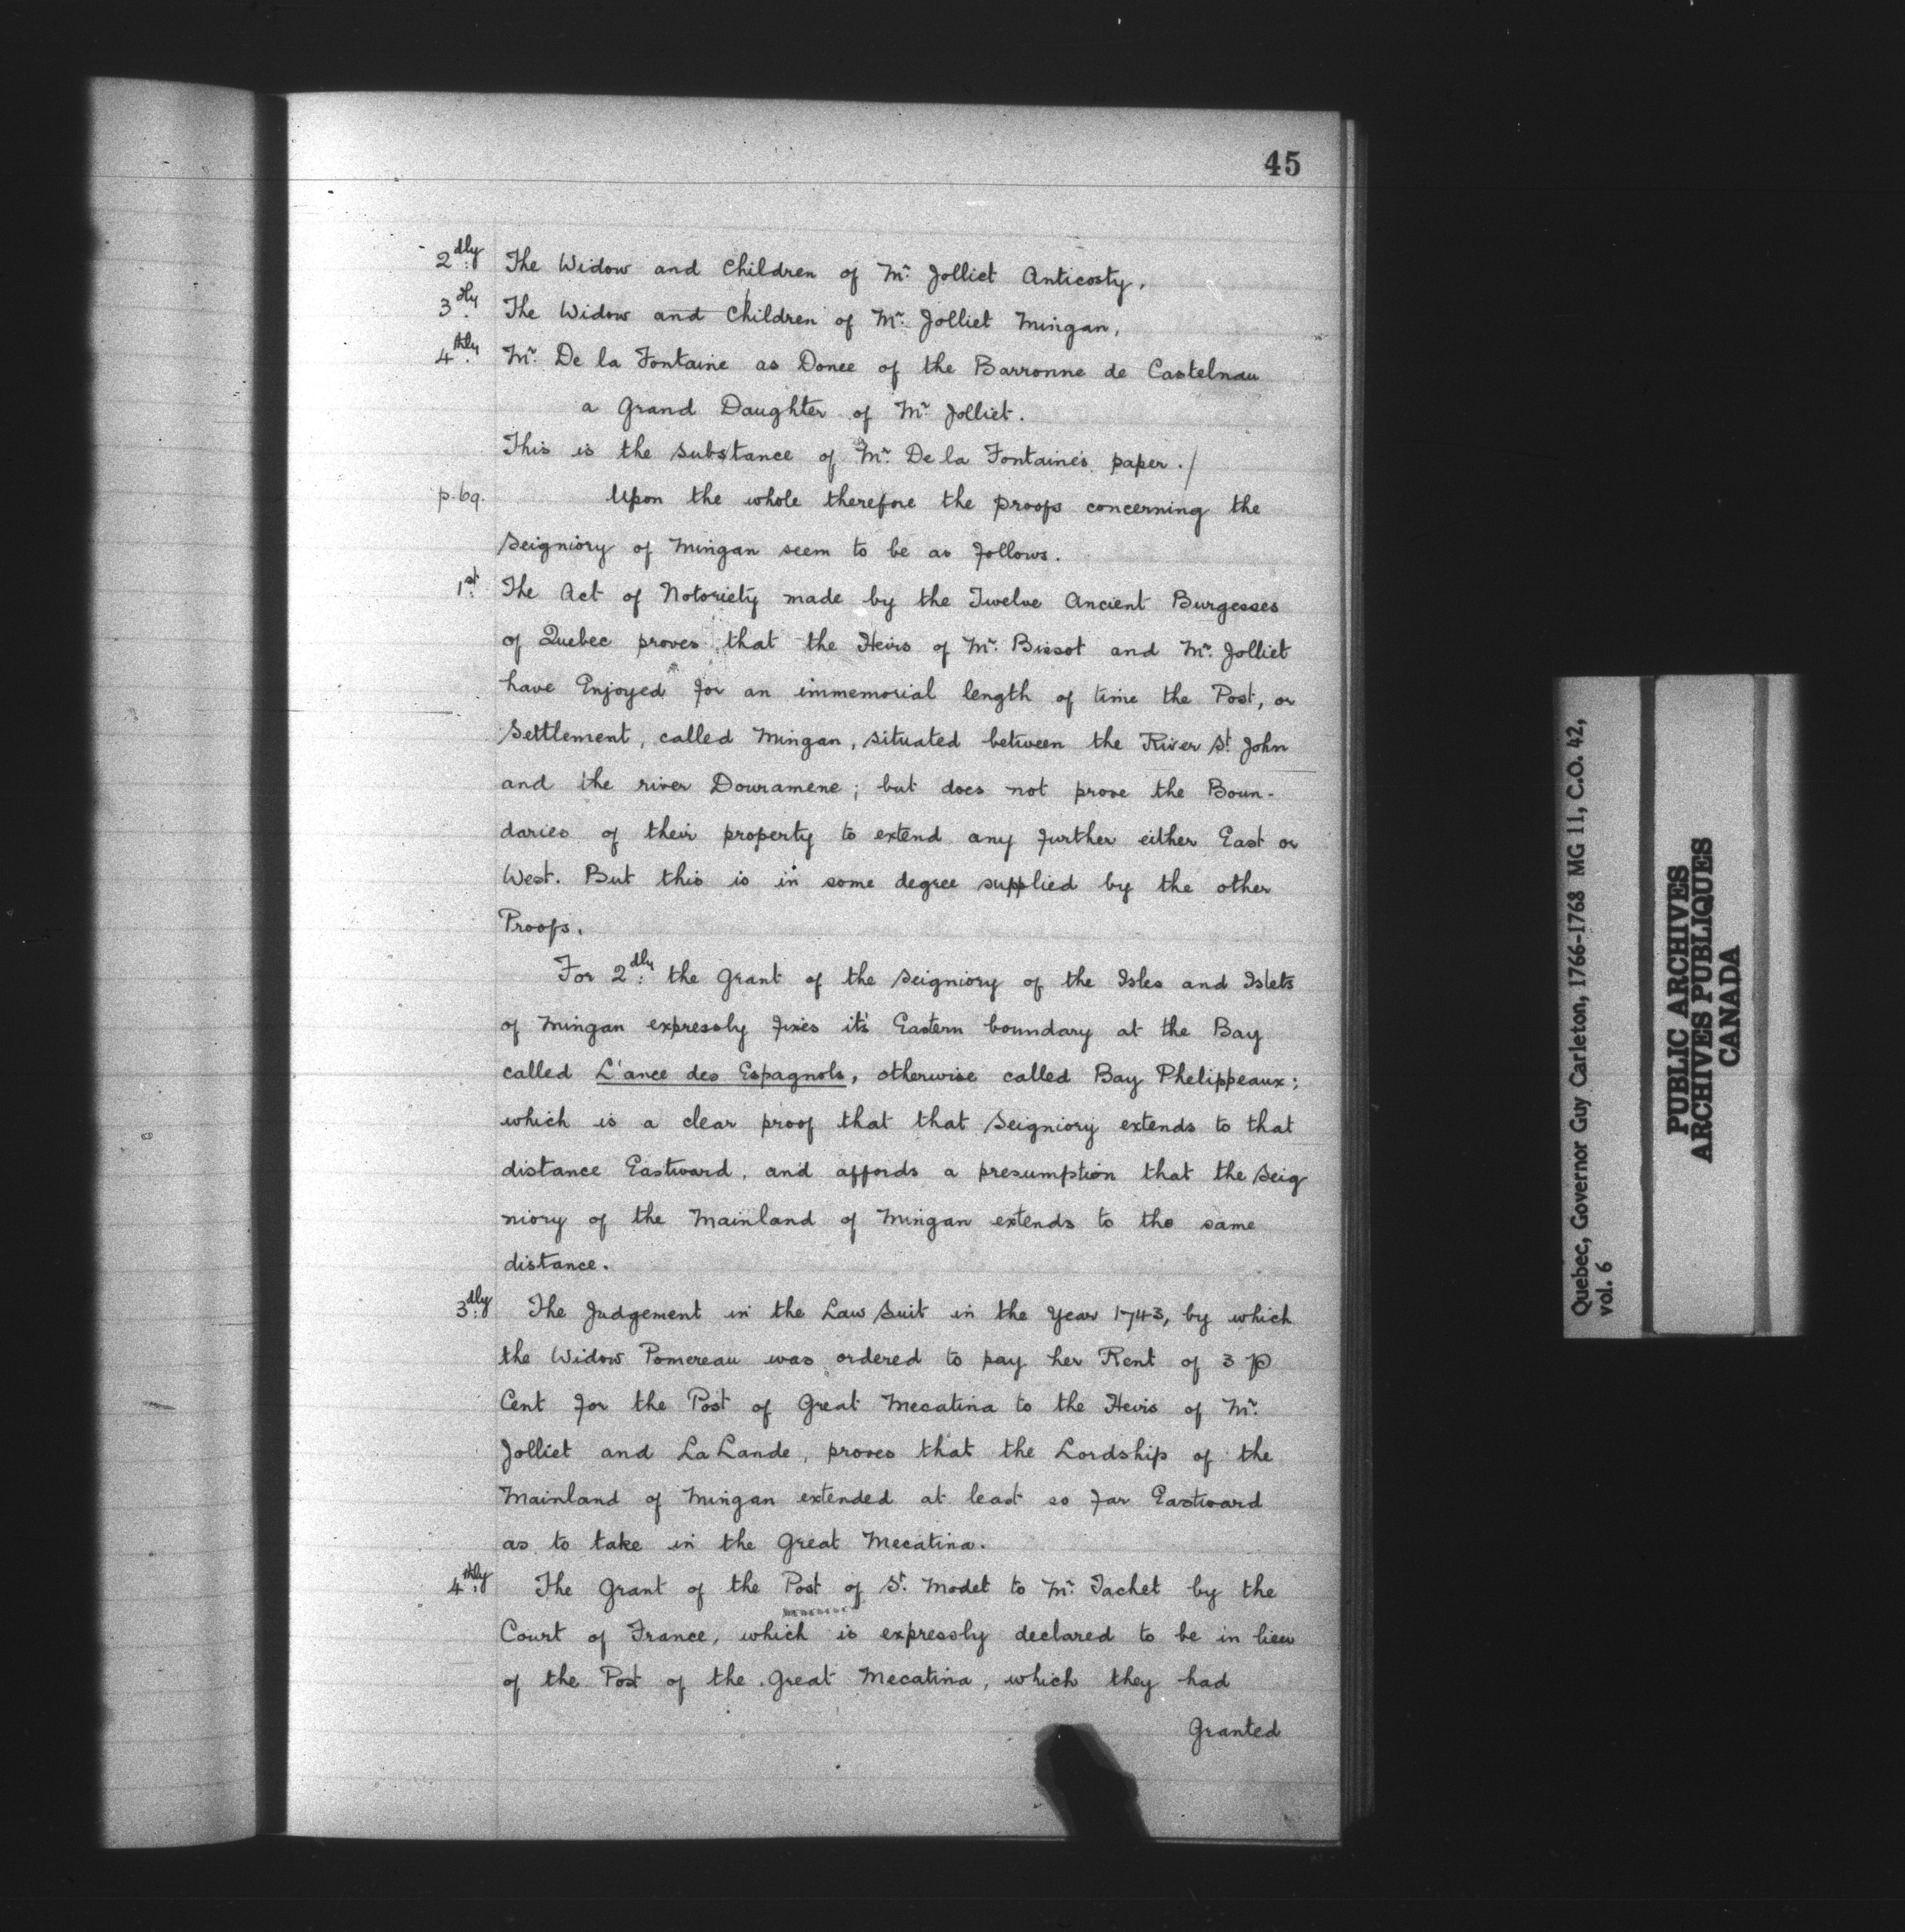 45
2dly The Widow and Children of Mr. Jolliet Anticosty,
3dly The Widow and Children of Mr. Jolliet Mingan,
4thly Mr. De la Fontaine as Donee of the Barronne de Castelnau
a Grand Daughter of Mr. Jolliet.
This is the substance of Mr. De la Fontaine's paper./
p.69. Upon the whole therefore the proofs concerning the
Seigniory of Mingan seem to be as follows.
1st. The Act of Notoriety made by the Twelve Ancient Burgesses
of Quebec proves that the Heirs of Mr. Bissot and Mr. Jolliet
have Enjoyed for an immemorial length of time the Post, or
Settlement, called Mingan, situated between the River St. John
and the river Douramene; but does not prove the Boun-
daries of their property to extend any further either East or
West. But this is in some degree supplied by the other
Proofs.
For 2dly: the Grant of the Seigniory of the Isles and Islets
of Mingan expressly fixes it's Eastern boundary at the Bay
called L'ance des Espagnols, otherwise called Bay Phelippeaux;
which is a clear proof that that Seigniory extends to that
distance Eastward, and affords a presumption that the Seig
niory of the Mainland of Mingan extends to the same
distance.
3dly: The Judgement in the Law Suit in the Year 1743, by which
the Widow Pomereau was ordered to pay her Rent of 3 p
Cent for the Post of Great Mecatina to the Heirs of Mr.
Jolliet and La Lande, proves that the Lordship of the
Mainland of Mingan extended at least so far Eastward
as to take in the Great Mecatina.
4thly: The Grant of the Post of St. Modet to Mr. Tachet by the
Court of France, which is expressly declared to be in lieu
of the Post of the Great Mecatina, which they had
Granted
Quebec, Governor Guy Carleton, 1766-1768 MG 11, C.O. 42,
vol. 6
PUBLIC ARCHIVES
ARCHIVES PUBLIQUES
CANADA